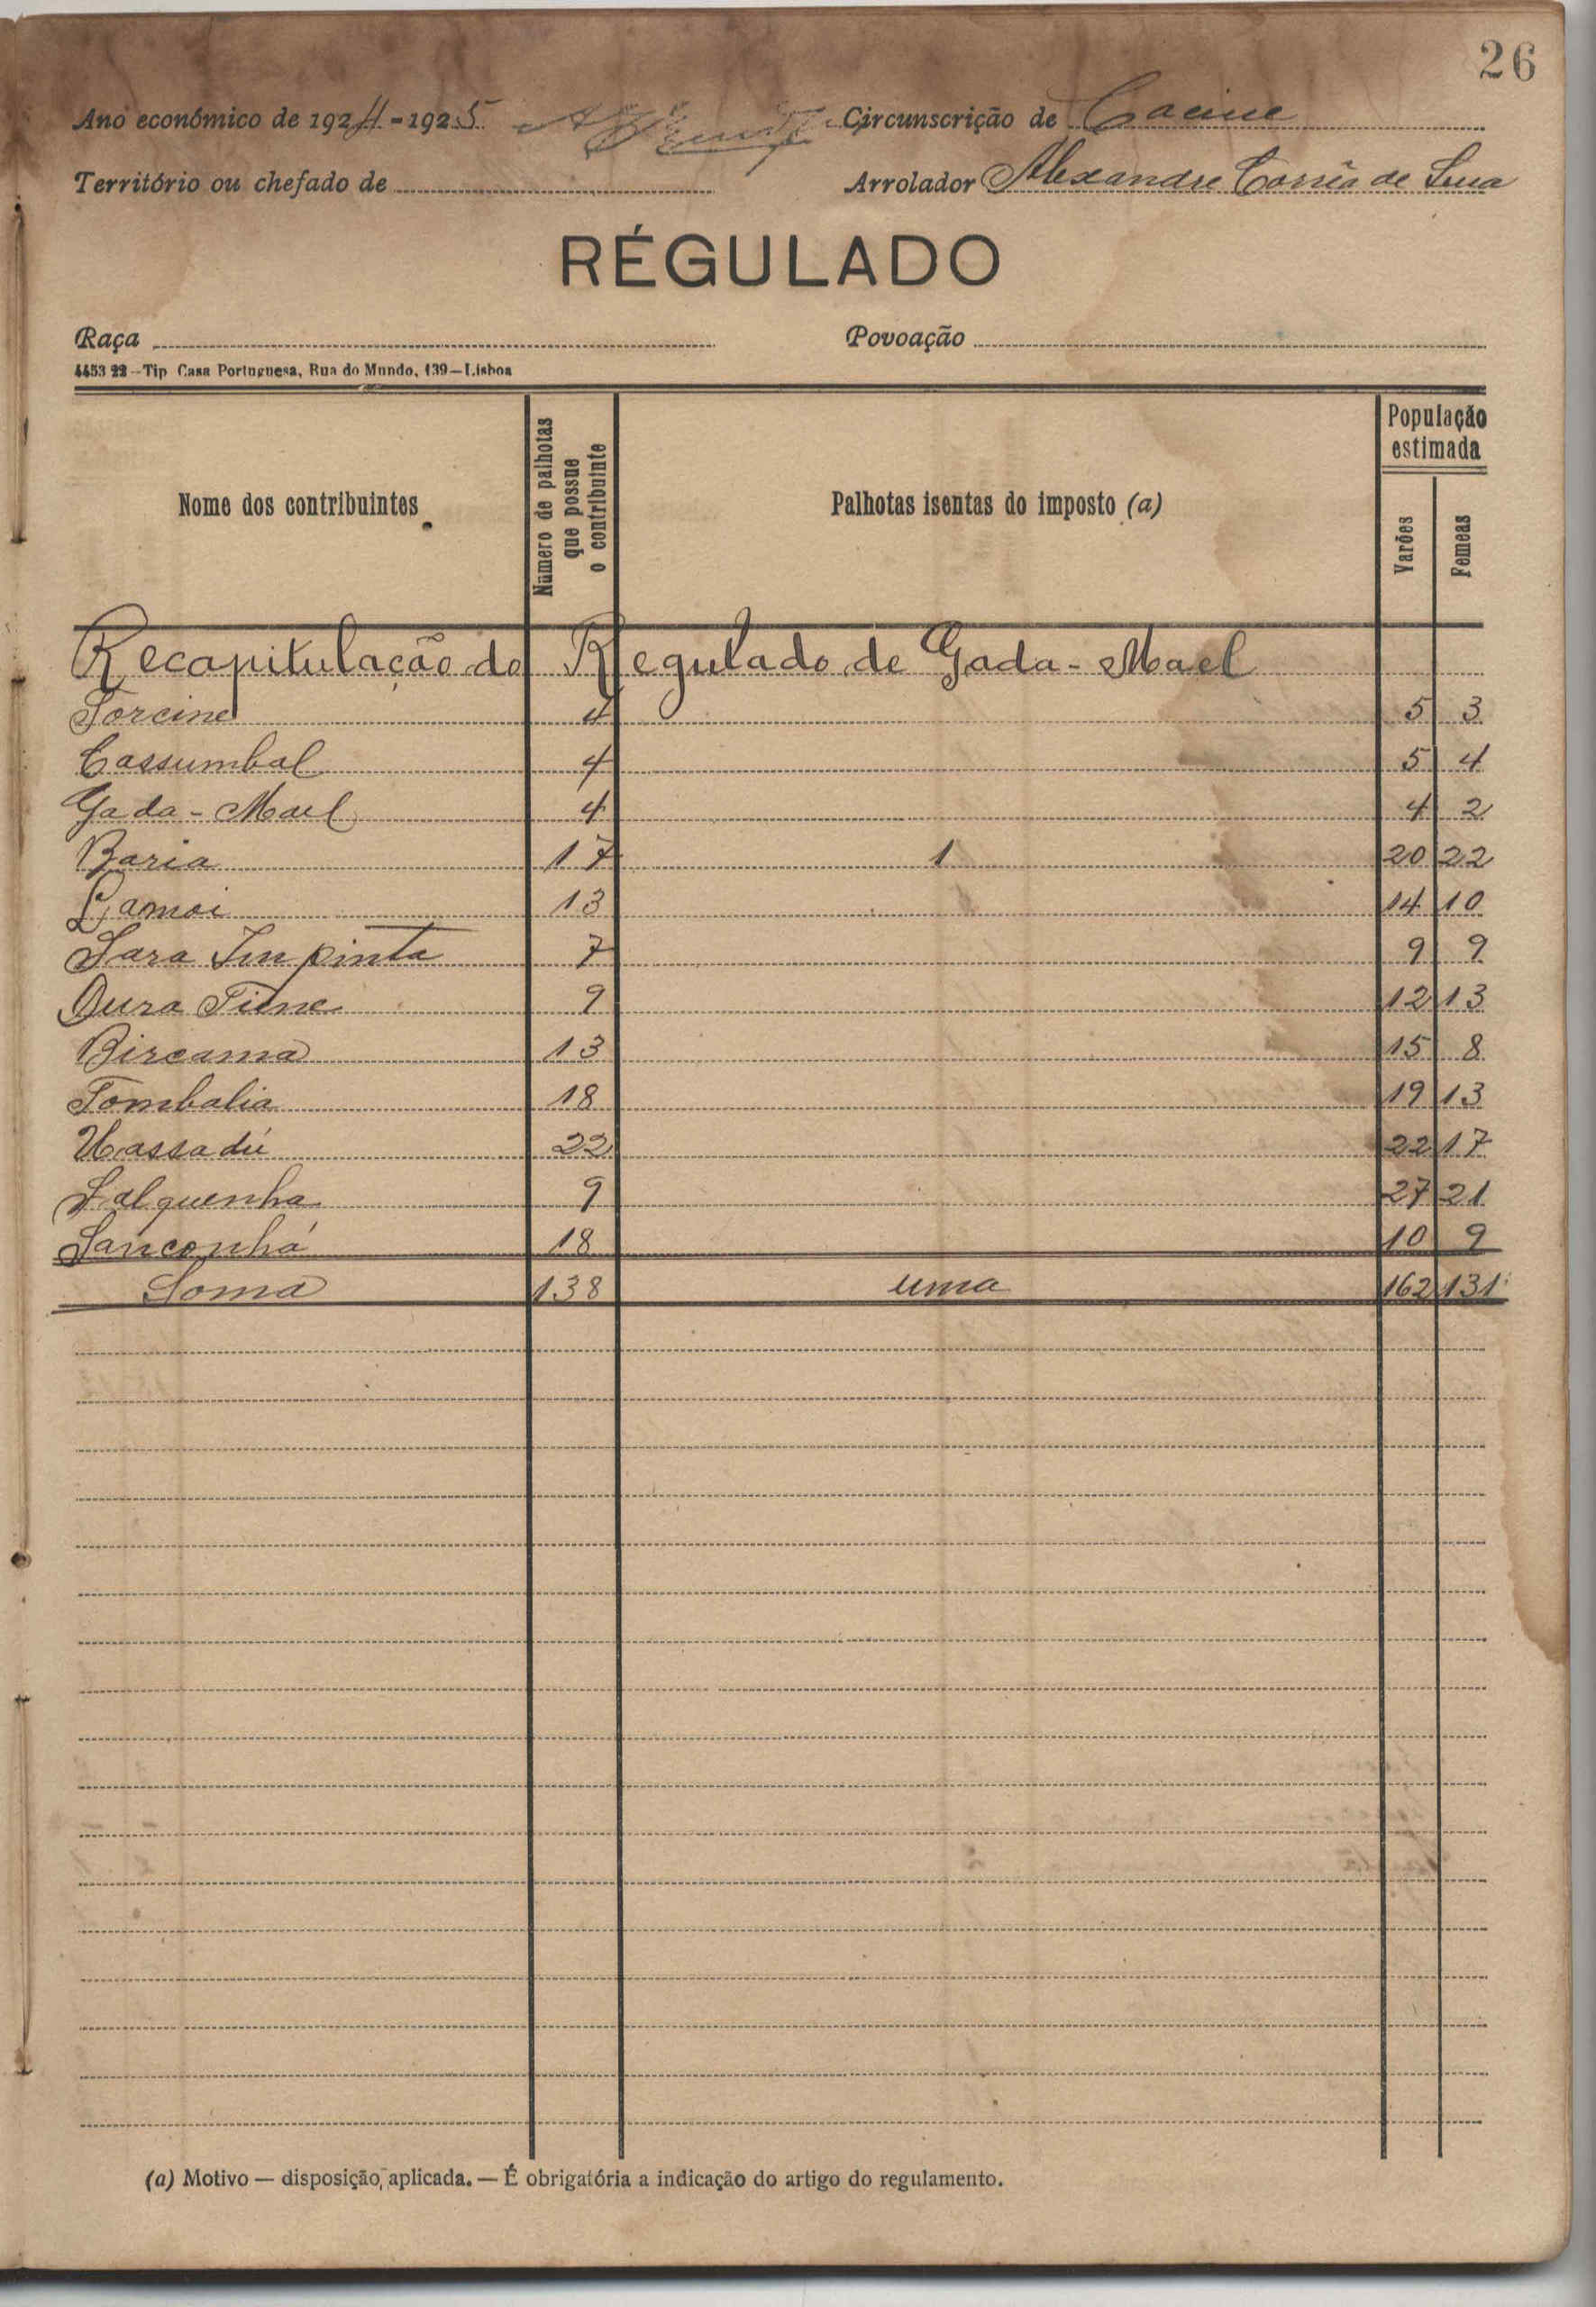 26
Ano económico de 1924-1925 Circunscrição de Cacine
Território ou chefado de
Arrolador Alexandre Corrêa de
RÉGULADO
Raça
Povoação
4453 22—Tip Casa Portuguesa, Rua do Mundo, 139—Lisboa
Nome dos contribuintes
Número de palhotas que possue o contribuinte
Palhotas isentas do imposto (a)
População estimada
Varões
Femeas
Recapitulação do Regulado de Gada-Mael
Torcine 4 5 3
Cassumbal 4 5 4
Gada-Mael 4 4 2
Baria 17 1 20 22
Gamoi 13 14 10
Sara Impinta 7 9 9
Dura Tiene 9 12 13
Bircama 13 15 8
Tombalia 18 19 13
Uassadú 22 22 17
Salquenha 9 27 21
Sanconhá 18 10 9
Soma 138 uma 162 131
(a) Motivo — disposição, aplicada. — É obrigatória a indicação do artigo do regulamento.